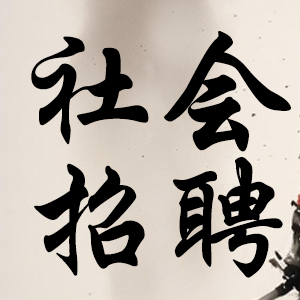 社会
招聘